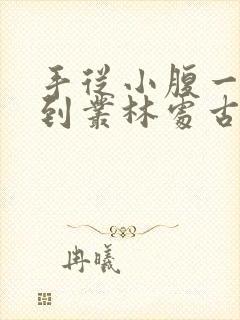 手從小腹一
到叢林處古
冉曦